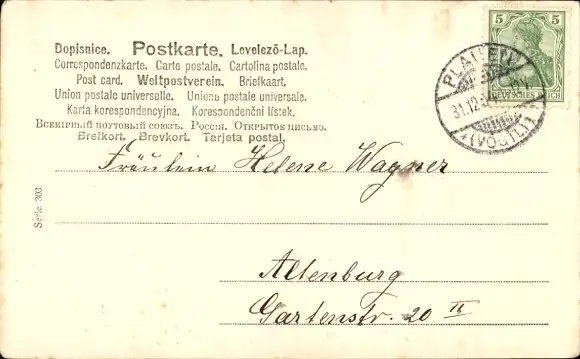 Dopisnice. Postkarte. Levelező-Lap.
Correspondenzkarte. Carte postale. Cartolina postale.
Post card. Weltpostverein. Briefkaart.
Union postale universelle. Unione postale universale.
Karta korespondencyjna. Korespondenční lístek.
Всемірный почтовый союзъ. Россія. Открытое письмо.
Brefkort. Brevkort. Tarjeta postal.
5 5
DEUTSCHES REICH
PLAUEN
31.12
(VOGTL)
Fräulein Helene Wagner
Altenburg
Gartenstr. 20 II
Serie 303